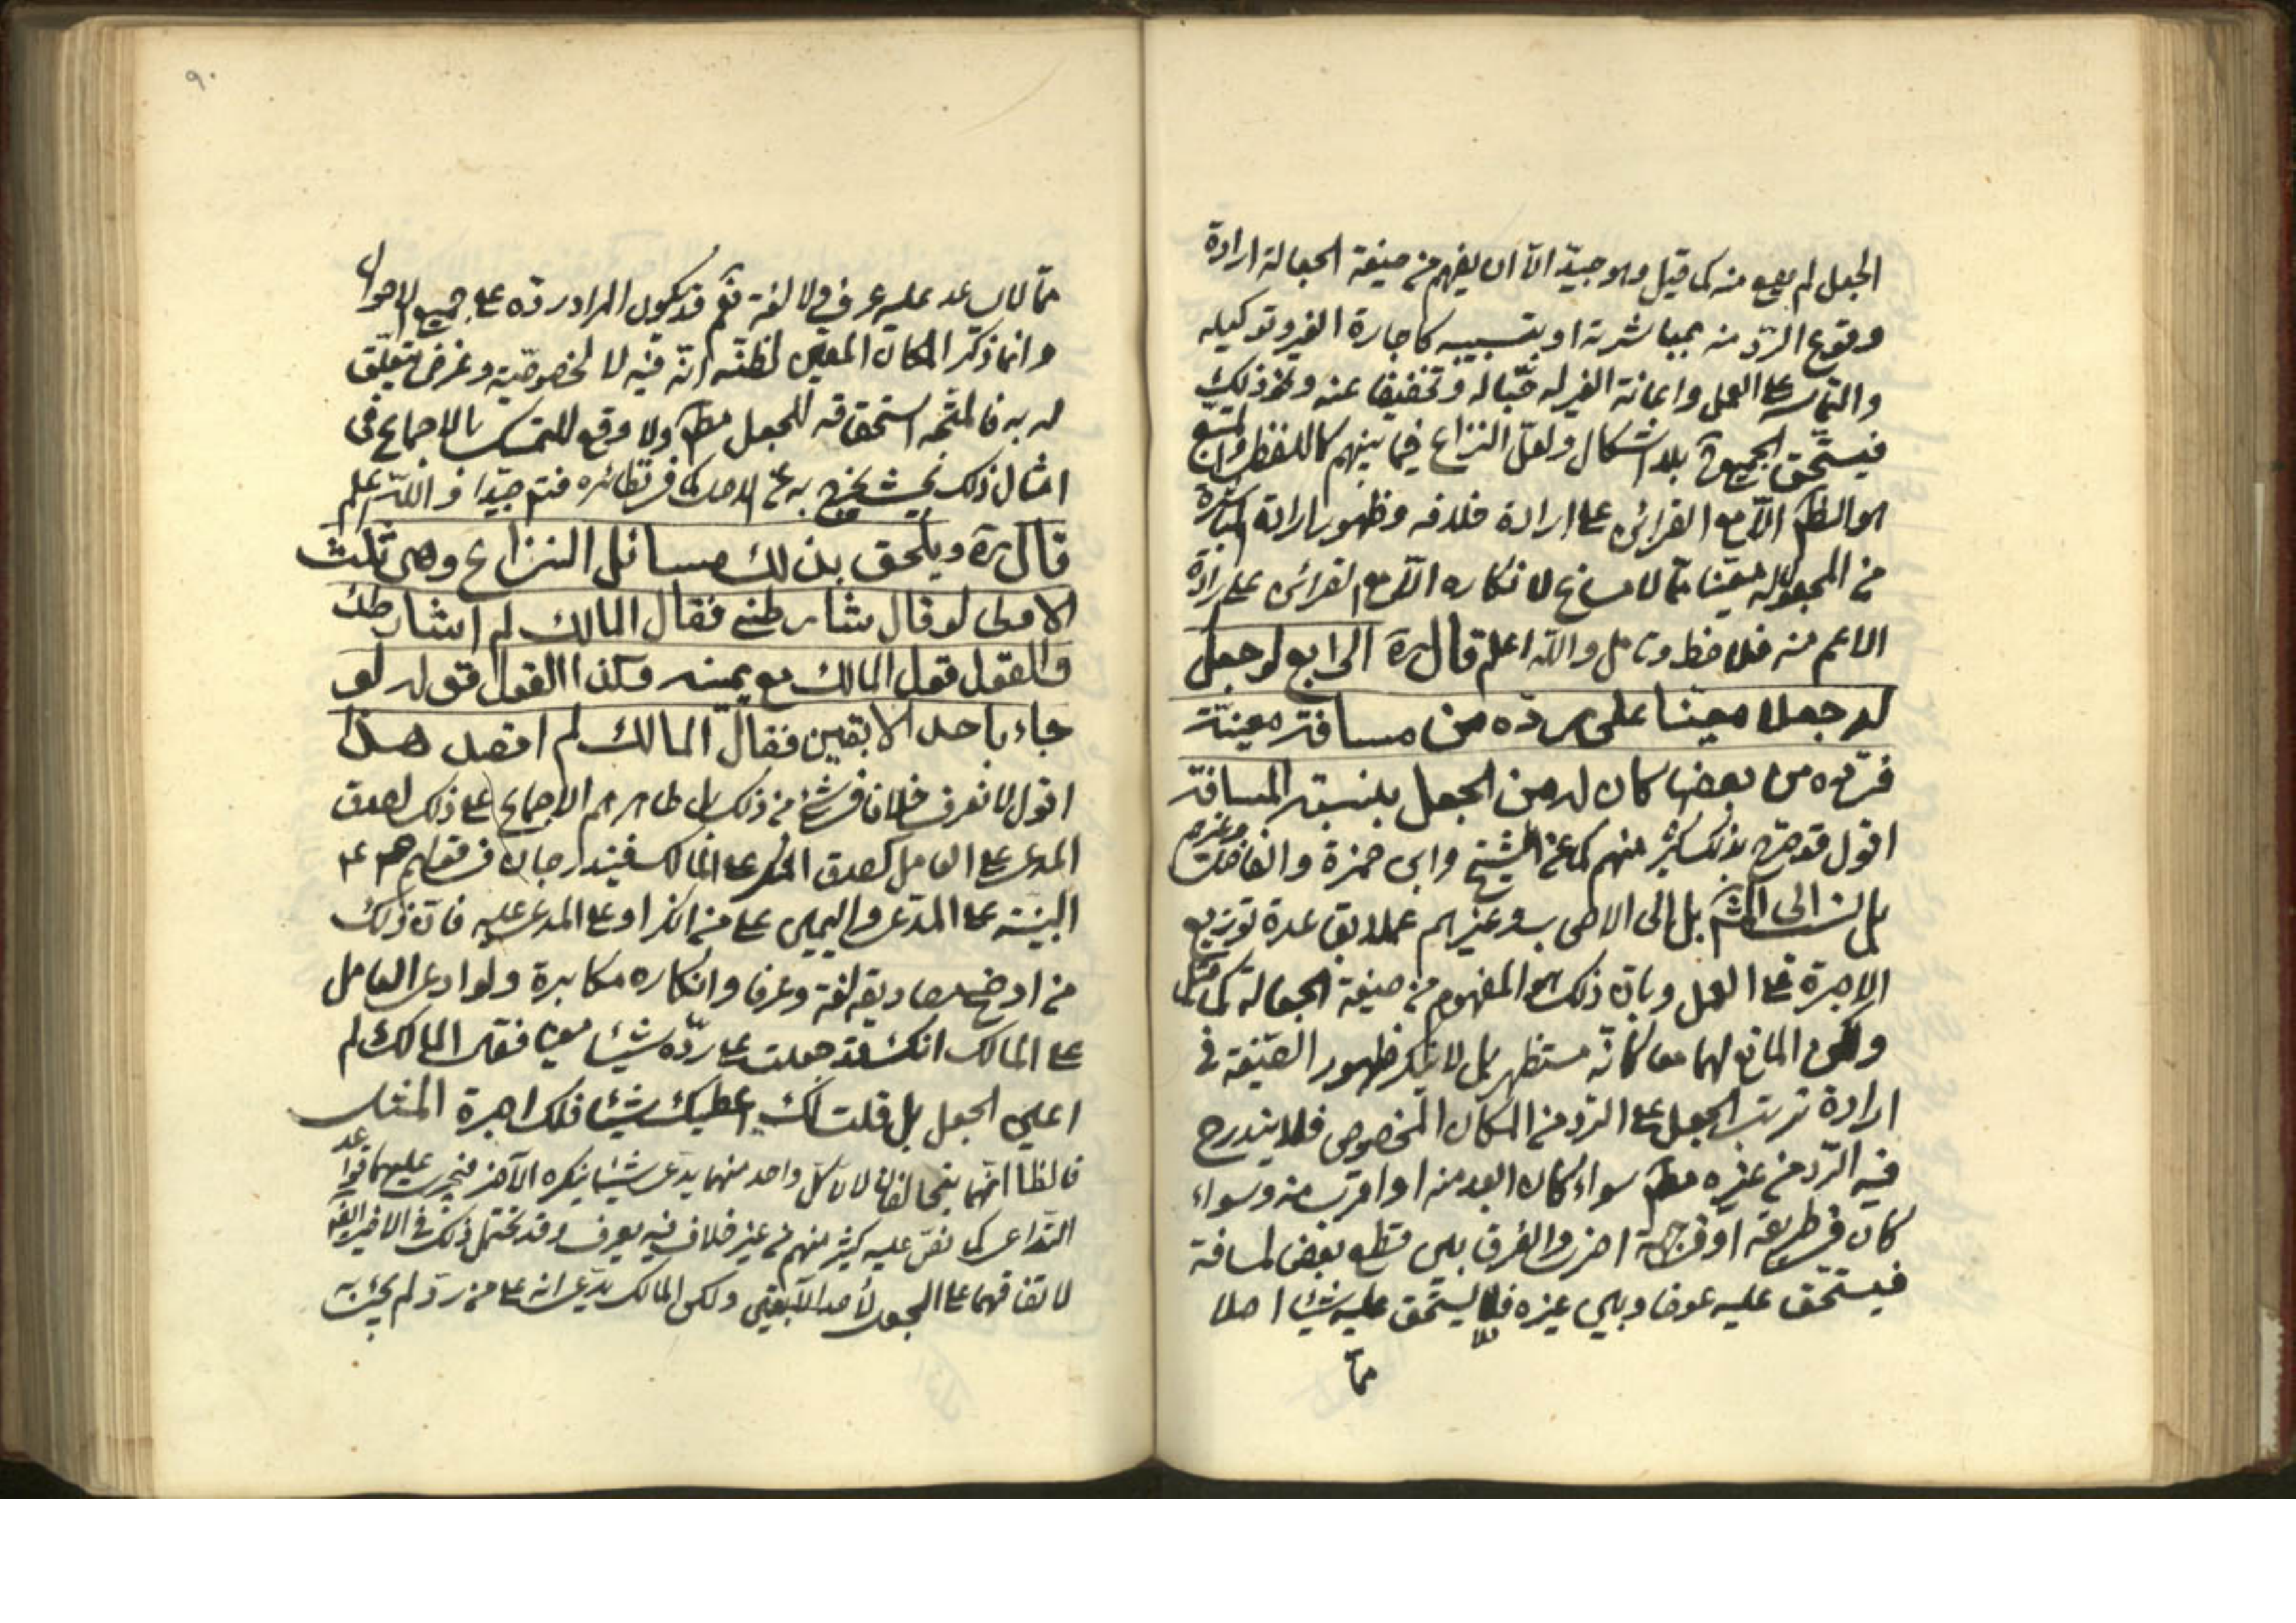 الجعل لم يقع منه كما قيل وهو جيّد الّا ان يفهم من صيغة الجعالة ارادة
وقوع الردّ منه بمباشرته او بتسبيبه كاجارة الغير وتوكيله
والتماسه على العمل واعانة الغير له حبّا له وتخفيفا عنه ونحو ذلك
فيستحق الجميع بلا اشكال ولعلّ النزاع فيما بينهم كاللفظى
هو الظ الّا مع القرائن على ارادة خلافه وظهور ارادة المباشرة
من المجعول له معيّنا ممّا لا مساغ لانكاره الّا مع القرائن على ارادة
الاعم منه فلاحظ وتامل والله اعلم قال ره الرابع لو جعل
له جعلا معينا على رده من مسافة معينة
فرده من بعضها كان له من الجعل بنسبة المسافة
اقول قد صرّح بذلك كثير منهم كما عن الشيخ وابن حمزة والفاضل وغيرهم
بل نسب الى بل الى الاصحاب وغيرهم عملا بقاعدة توزيع
الاجرة على العمل وبان ذلك هو المفهوم من صيغة الجعالة كما قيل
المانع لهما معا كانّه مستظهر بل لا ينكر ظهور الصّيغة فى
ارادة ترتب الجعل على الردّ من المكان المخصوص فلا يندرج
فيه الردّ من غيره مط سواء كان ابعد منه او اقرب منه وسواء
كان فى طريقه او فى جهة اخرى والفرق بين قطع بعض المسافة
فيستحق عليه عوضا وبين غيره فلا يستحق عليه شيئا اصلا
ممّا
٩٠
ممّا لا يساعد عليه عرف ولا لغة نعم قد يكون المراد ردّه على جميع الاحوال
وانما ذكر المكان المعين لظنّه انّه فيه لا لخصوصيّة وغرض يتعلّق
له به فالمتّجه استحقاقه للجعل مط ولا وقع للتمسك بالاجماع فى
امثال ذلك بحيث يخرج به عن الاصل كما فى نظائره فتم جيّدا والله اعلم
قال ره ويلحق بذلك مسائل النزاع وهى ثلث
الاولى لو قال شارطتنى فقال المالك لم اشارطك
فالقول قول المالك مع يمينه وكذا القول قوله لو
جاء باحد الابقين فقال المالك لم اقصد هذا
اقول لا نعرف خلافا فى شئ من ذلك بل ظاهرهم الاجماع على ذلك لصدق
المدعى على العامل كصدق المنكر على المالك فيندرجان فى قولهم ع
البيّنة على المدّعى واليمين على من انكر او على المدعى عليه فان ذلك
من اوضح مصاديقه لغة وعرفا وانكاره مكابرة ولو ادعى العامل
على المالك انك قد جعلت على ردّه شيئا معينا فقال المالك لم
اعلى الجعل بل قلت لك اعطيك شيئا فلك اجرة المثل
فالظ انّهما يتحالفان لان كلّ واحد منهما يدّعى شيئا ينكره الآخر فيجرى عليهما قواعد
التداعى كما نصّ عليه كثير منهم من غير خلاف فيه يعرف وقد يحتمل ذلك فى الاخير ايضا
لاتفاقهما على الجعل لأحد الآبقين ولكن المالك يدّعى انه على من ردّ لم يجئ به